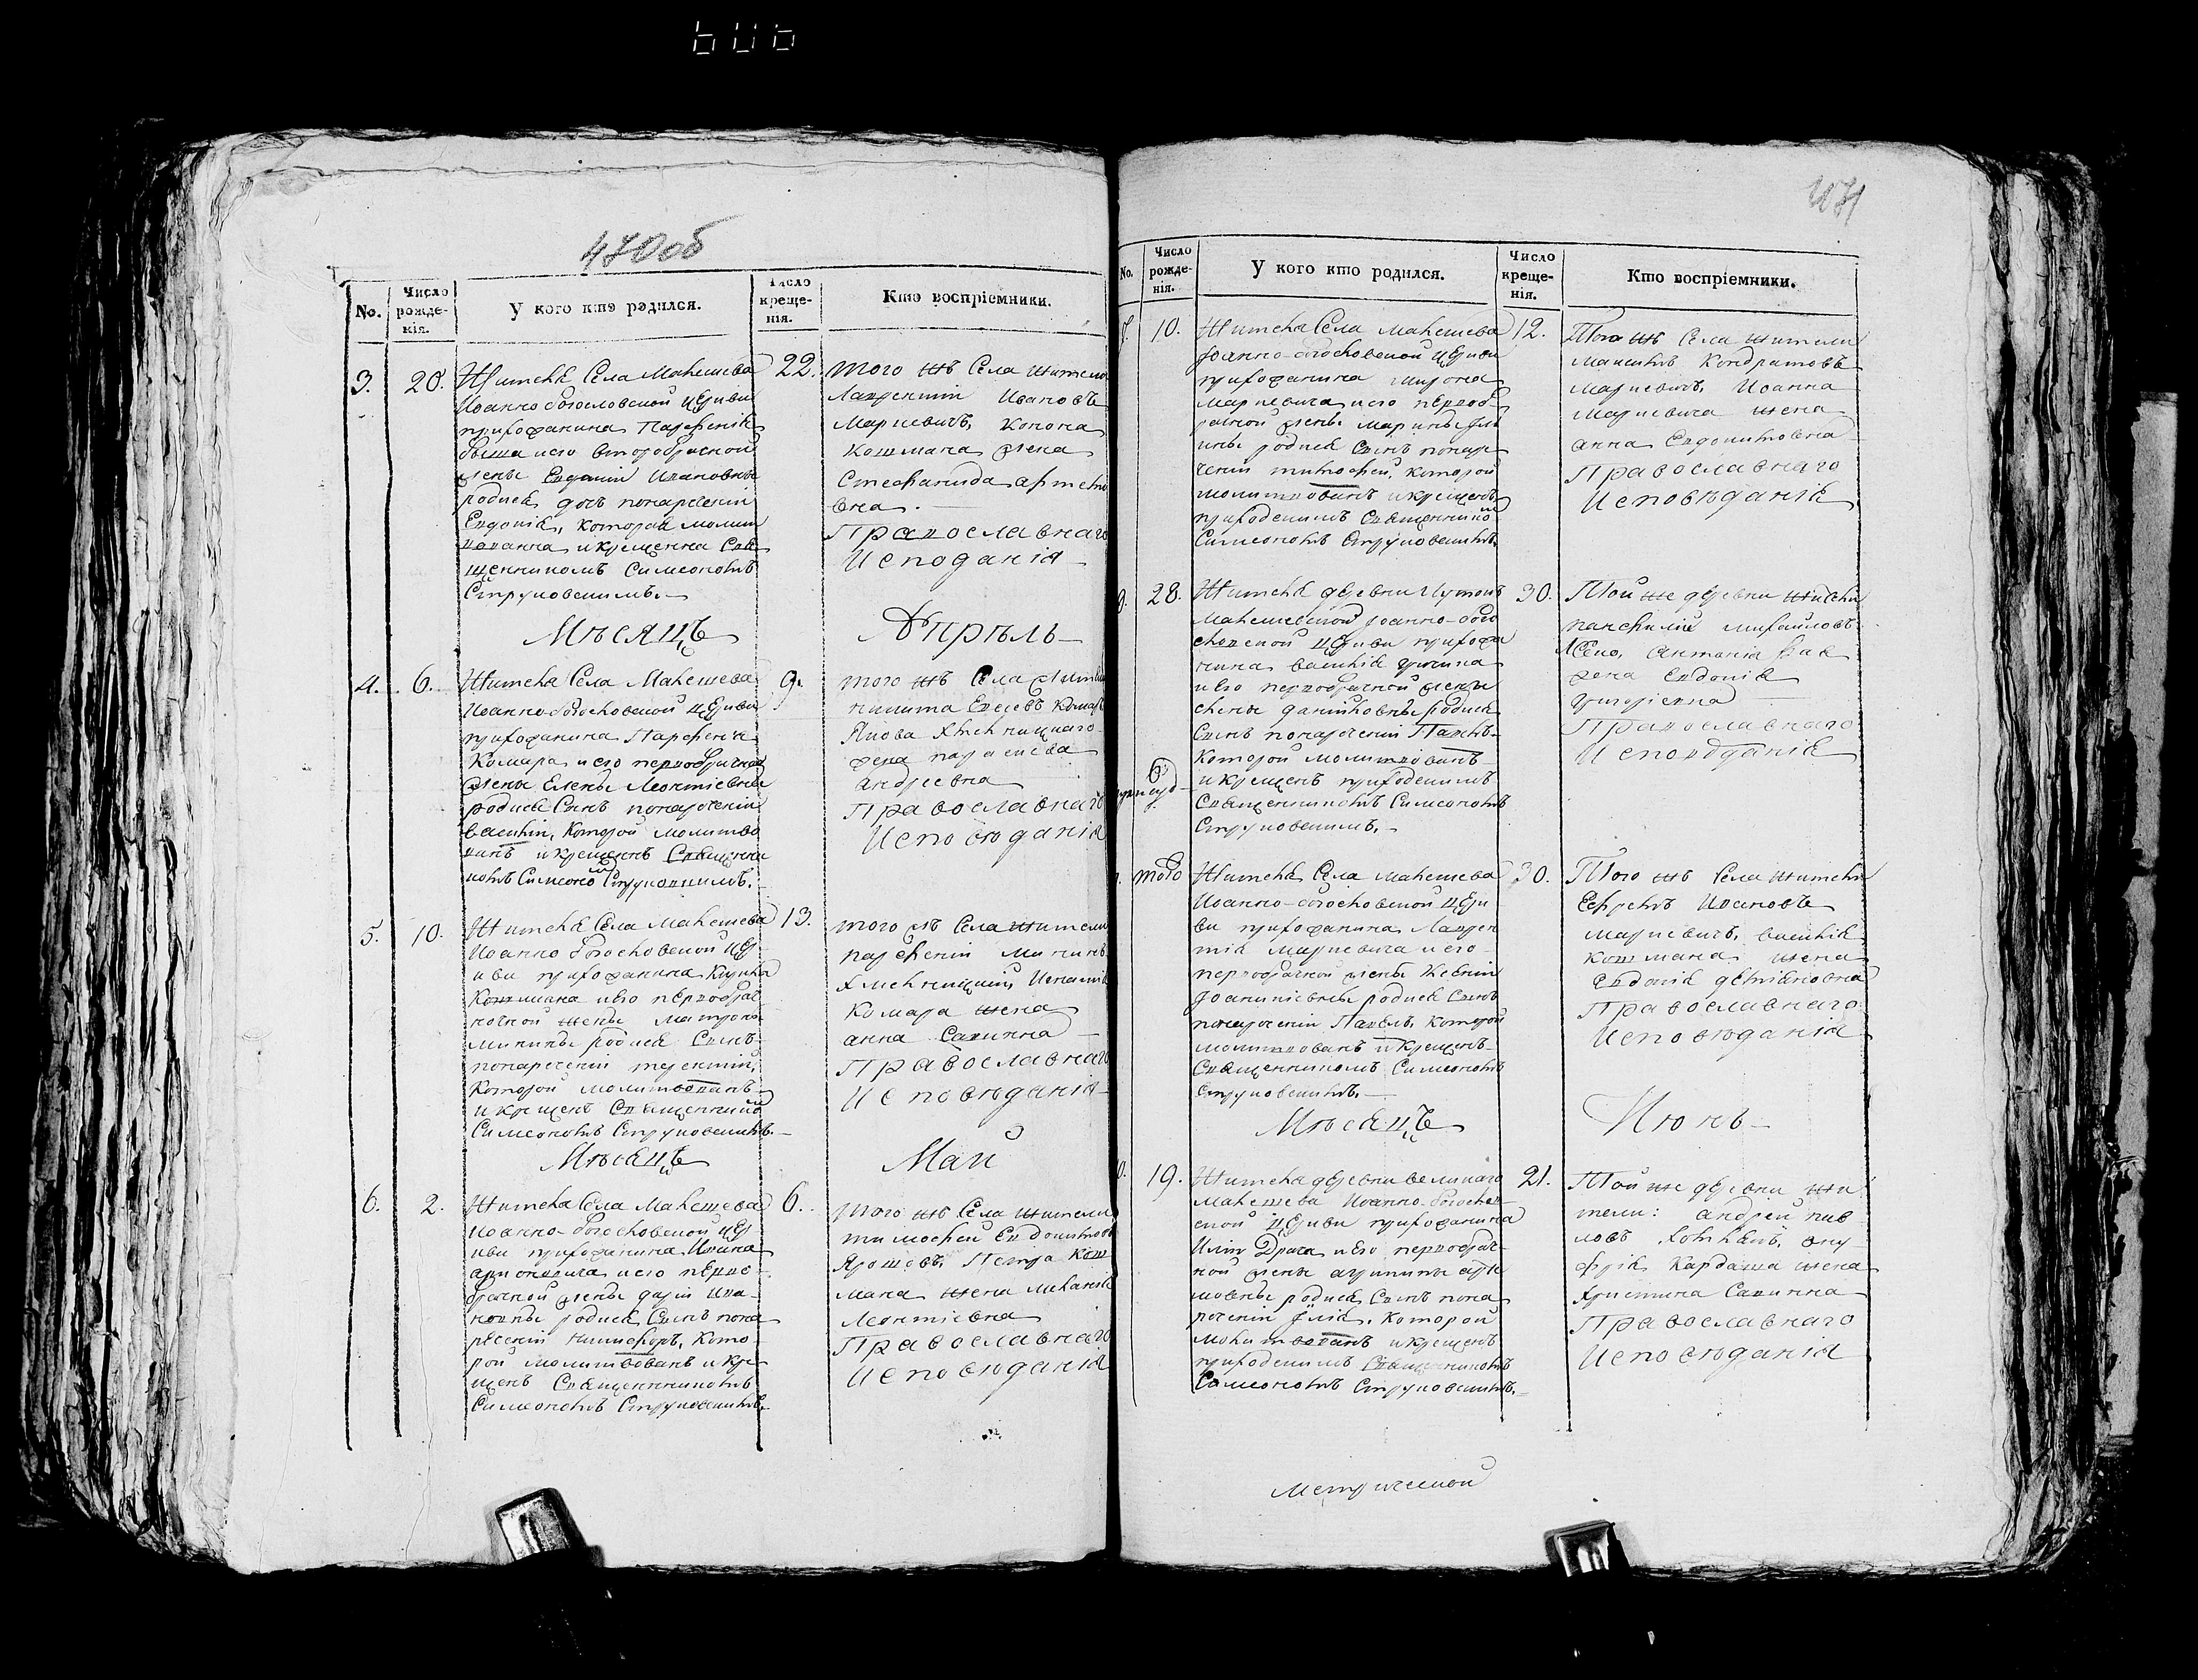 470об
No.
Число рожде-
нія.
У кого кто родился.
Число креще-
нія.
Кто воспріемники.
3.
20.
Жителя Села Макешева
Иоанно богословской церкви
прихожанина Парфенія
и его второбрачной
жены Евдокіи Ивановны
родися дочь понаречении
Евдокія, которая молит
вованна и крещенна Свя
щенникомъ Симеономъ
Струковскимъ.
22.
того жъ Села жители
Лаврентій Ивановъ
Марцевичъ, Конона
Кошмана жена
Стефанида Артемо
вна.
Православнаго
Исподанія
Мѣсяцъ
Апрѣль
4.
6.
Жителя Села Макешева
Иоанно-богословской церкви
прихожанина Парфенія
Комара и его первобрачной
жены Елены Леонтіевны
родися Сынъ понаречении
Василій, которой молитво
ванъ и крещенъ Священни
комъ Симеоном Струковскимъ.
9.
того жъ Села жители
никита Евсеевъ Комаръ
Якова Хмельницкаго
жена параскева
Андреевна
Православнаго
Исповѣданія
5.
10.
Жителя Села Макешева
Иоанно богословской цер
кви прихожанина
Кошмана и его первобрач
ночной жены Матроны
Минины родися Сынъ
понаречении терентій,
которой молитвованъ
и крещенъ Священником
Симеономъ Струковскимъ.
13.
того жъ Села жители
парфеній Мининъ
Хмельницкій, Игнатія
Комара жена
анна Савинна
Православнаго
Исповѣданія
Мѣсяцъ
Май
6.
2.
Жителя Села Макешева
иоанно-богословской цер
кви прихожанина Ивана
и его перво
брачной жены даріи Ива
новны родися Сынъ пона
речении Никифоръ, кото
рой молитвованъ и кре
щенъ Священникомъ
Симеономъ Струковскимъ.
6.
того жъ Села жители
тимофей Евдокимовъ
Ярошовъ, Петра Кош
мана жена Меланія
Леонтіевна
Православнаго
Исповѣданія
471
No.
Число рожде-
нія.
У кого кто родился.
Число креще-
нія.
Кто воспріемники.
10.
Жителя Села Макешева
Іоанно-богословской церкви
прихожанина Мирона
Марцевича и его первоб
рачной жены Марины
родися Сынъ понаре
чении тимофей, которой
молитвованъ и крещенъ
приходскимъ Священником
Симеономъ Струковскимъ.
12.
Того жъ Села жители
Максимъ Кондратовъ
Марцевичъ, Иоанна
Марцевича жена
анна Евдокимовна
Православнаго
Исповѣданія
28.
Жителя деревни
Макешевской Іоанно-бого
словской церкви прихожа
нина Василія
и его первобрачной жены
Елены даниловны родися
Сынъ понаречении Павлъ
которой молитвованъ
и крещенъ приходскимъ
Священникомъ Симеономъ
Струковскимъ.
30.
Той же деревни жители
Михайловъ
Антонія
жена Евдокія
григоріевна
Православнаго
Исповѣданія
того
Жителя Села Макешева
Иоанно-богословской церк
ви прихожанина Лаврен
тія Марцевича и его
первобрачной жены Ксеніи
Іоанніевны родися Сынъ
понаречении Павелъ, которой
молитвованъ и крещенъ
Священникомъ Симеономъ
Струковскимъ.
30.
Того жъ Села жители
Ефремъ Ивановъ
Марцевичъ, Василія
Кошмана жена
Евдокія демяновна
Православнаго
Исповѣданія
Мѣсяцъ
Июнь
19.
Жителя деревни великаго
Макешева Иоанно-богослов
ской церкви прихожанина
Иліи Драча и его первобрач
ной жены агрипины
родися Сынъ пона
речении Ілія, которой
молитвованъ и крещенъ
приходскимъ Священникомъ
Симеономъ Струковскимъ.
21.
Той же деревни жи
тели: андрей пав
ловъ
Кардаша жена
Христина Савинна
Православнаго
Исповѣданія
Метрической